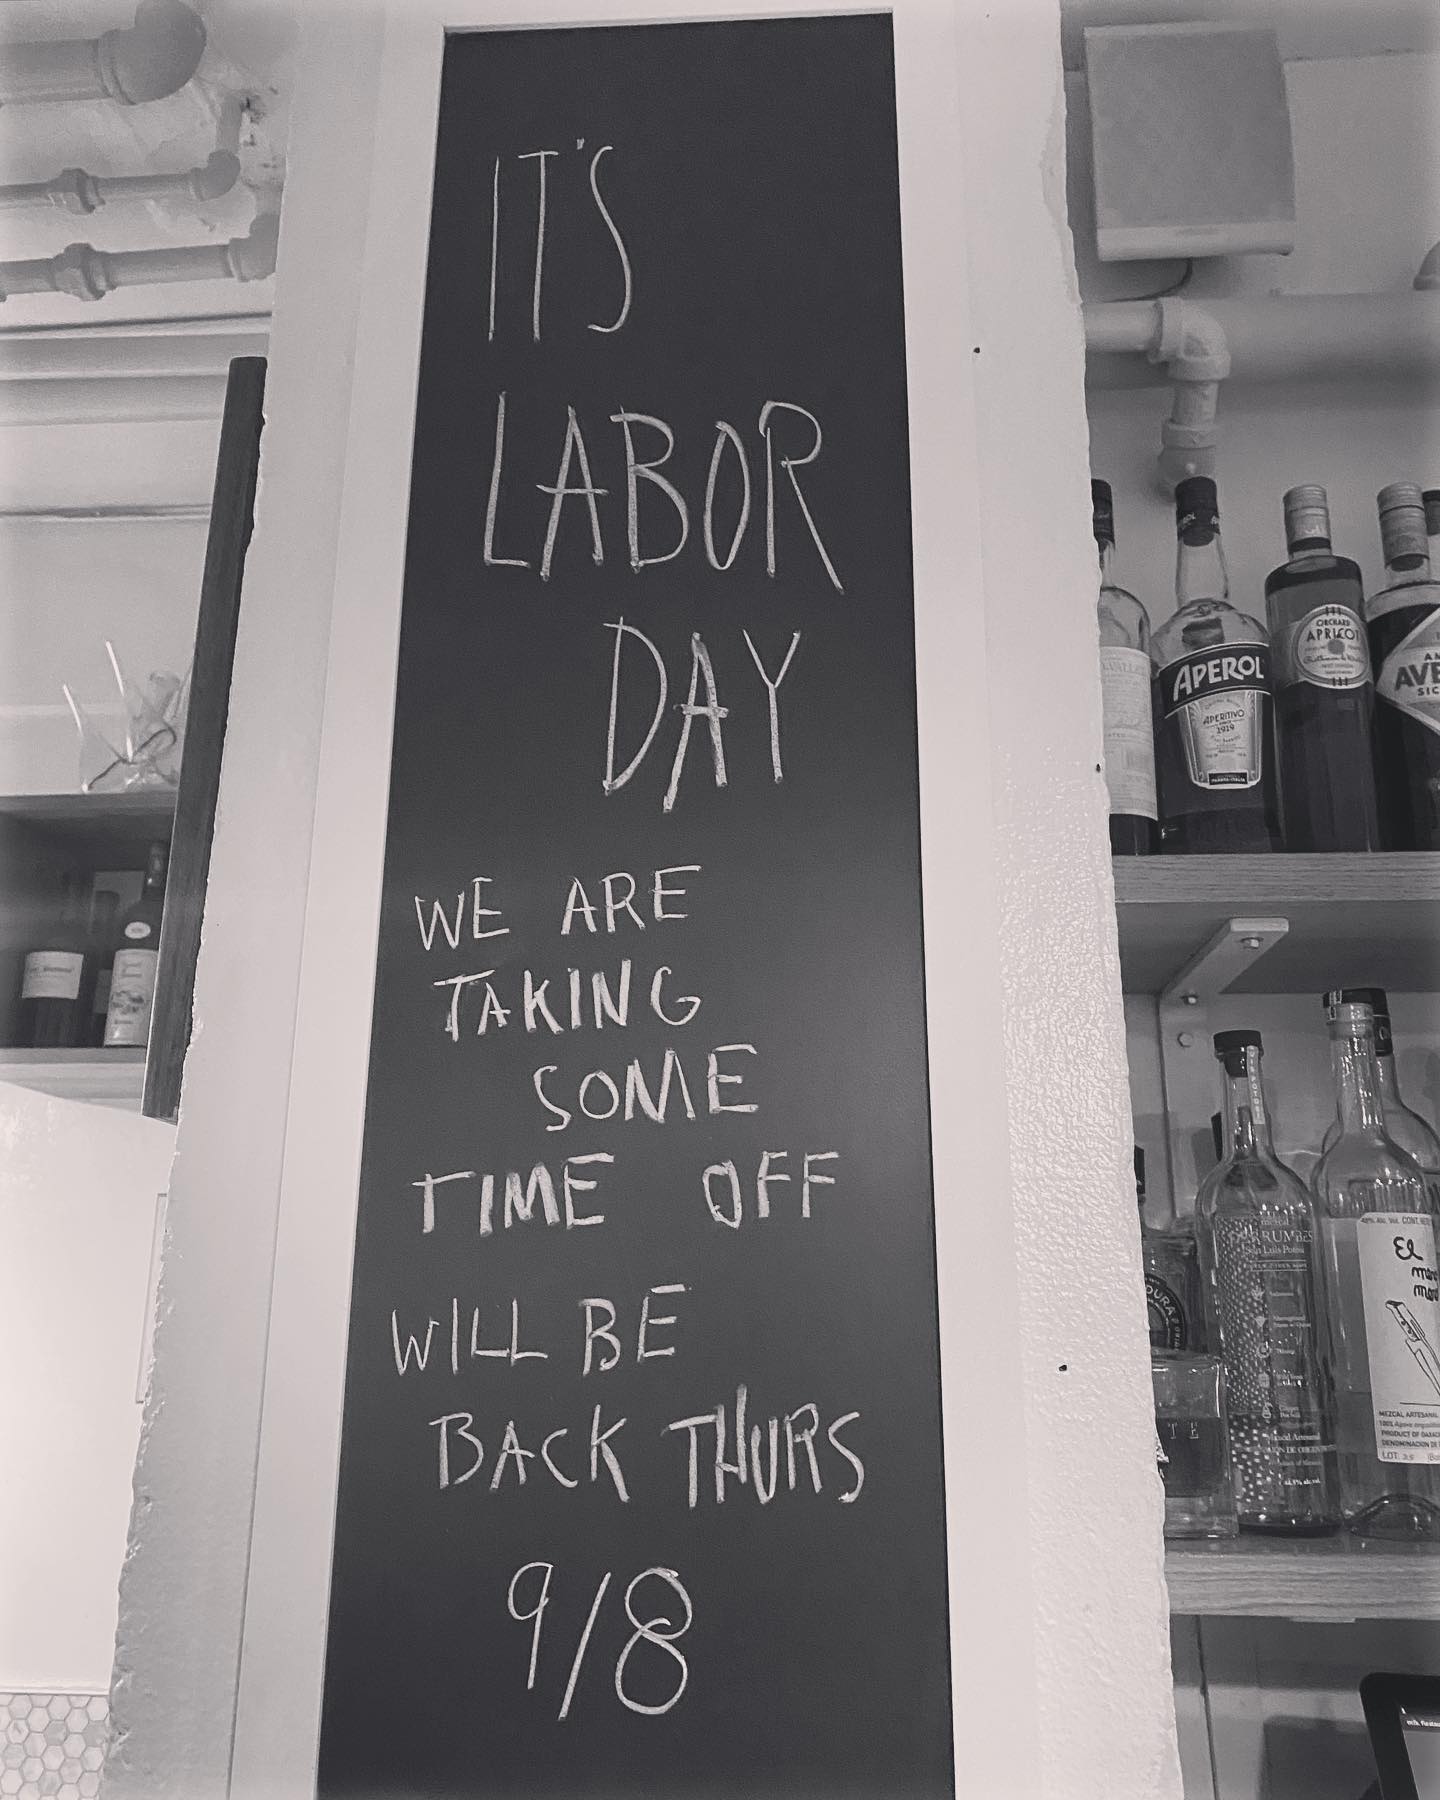 IT'S
LABOR
DAY
WE ARE
TAKING
SOME
TIME OFF
WILL BE
BACK THURS
9/8
APEROL
APERITIVO
1919
ORCHARD
APRICOT
AVE
SIC
mezcal
San Luis Potosí
El
MEZCAL ARTESANAL
PRODUCT OF OAXACA